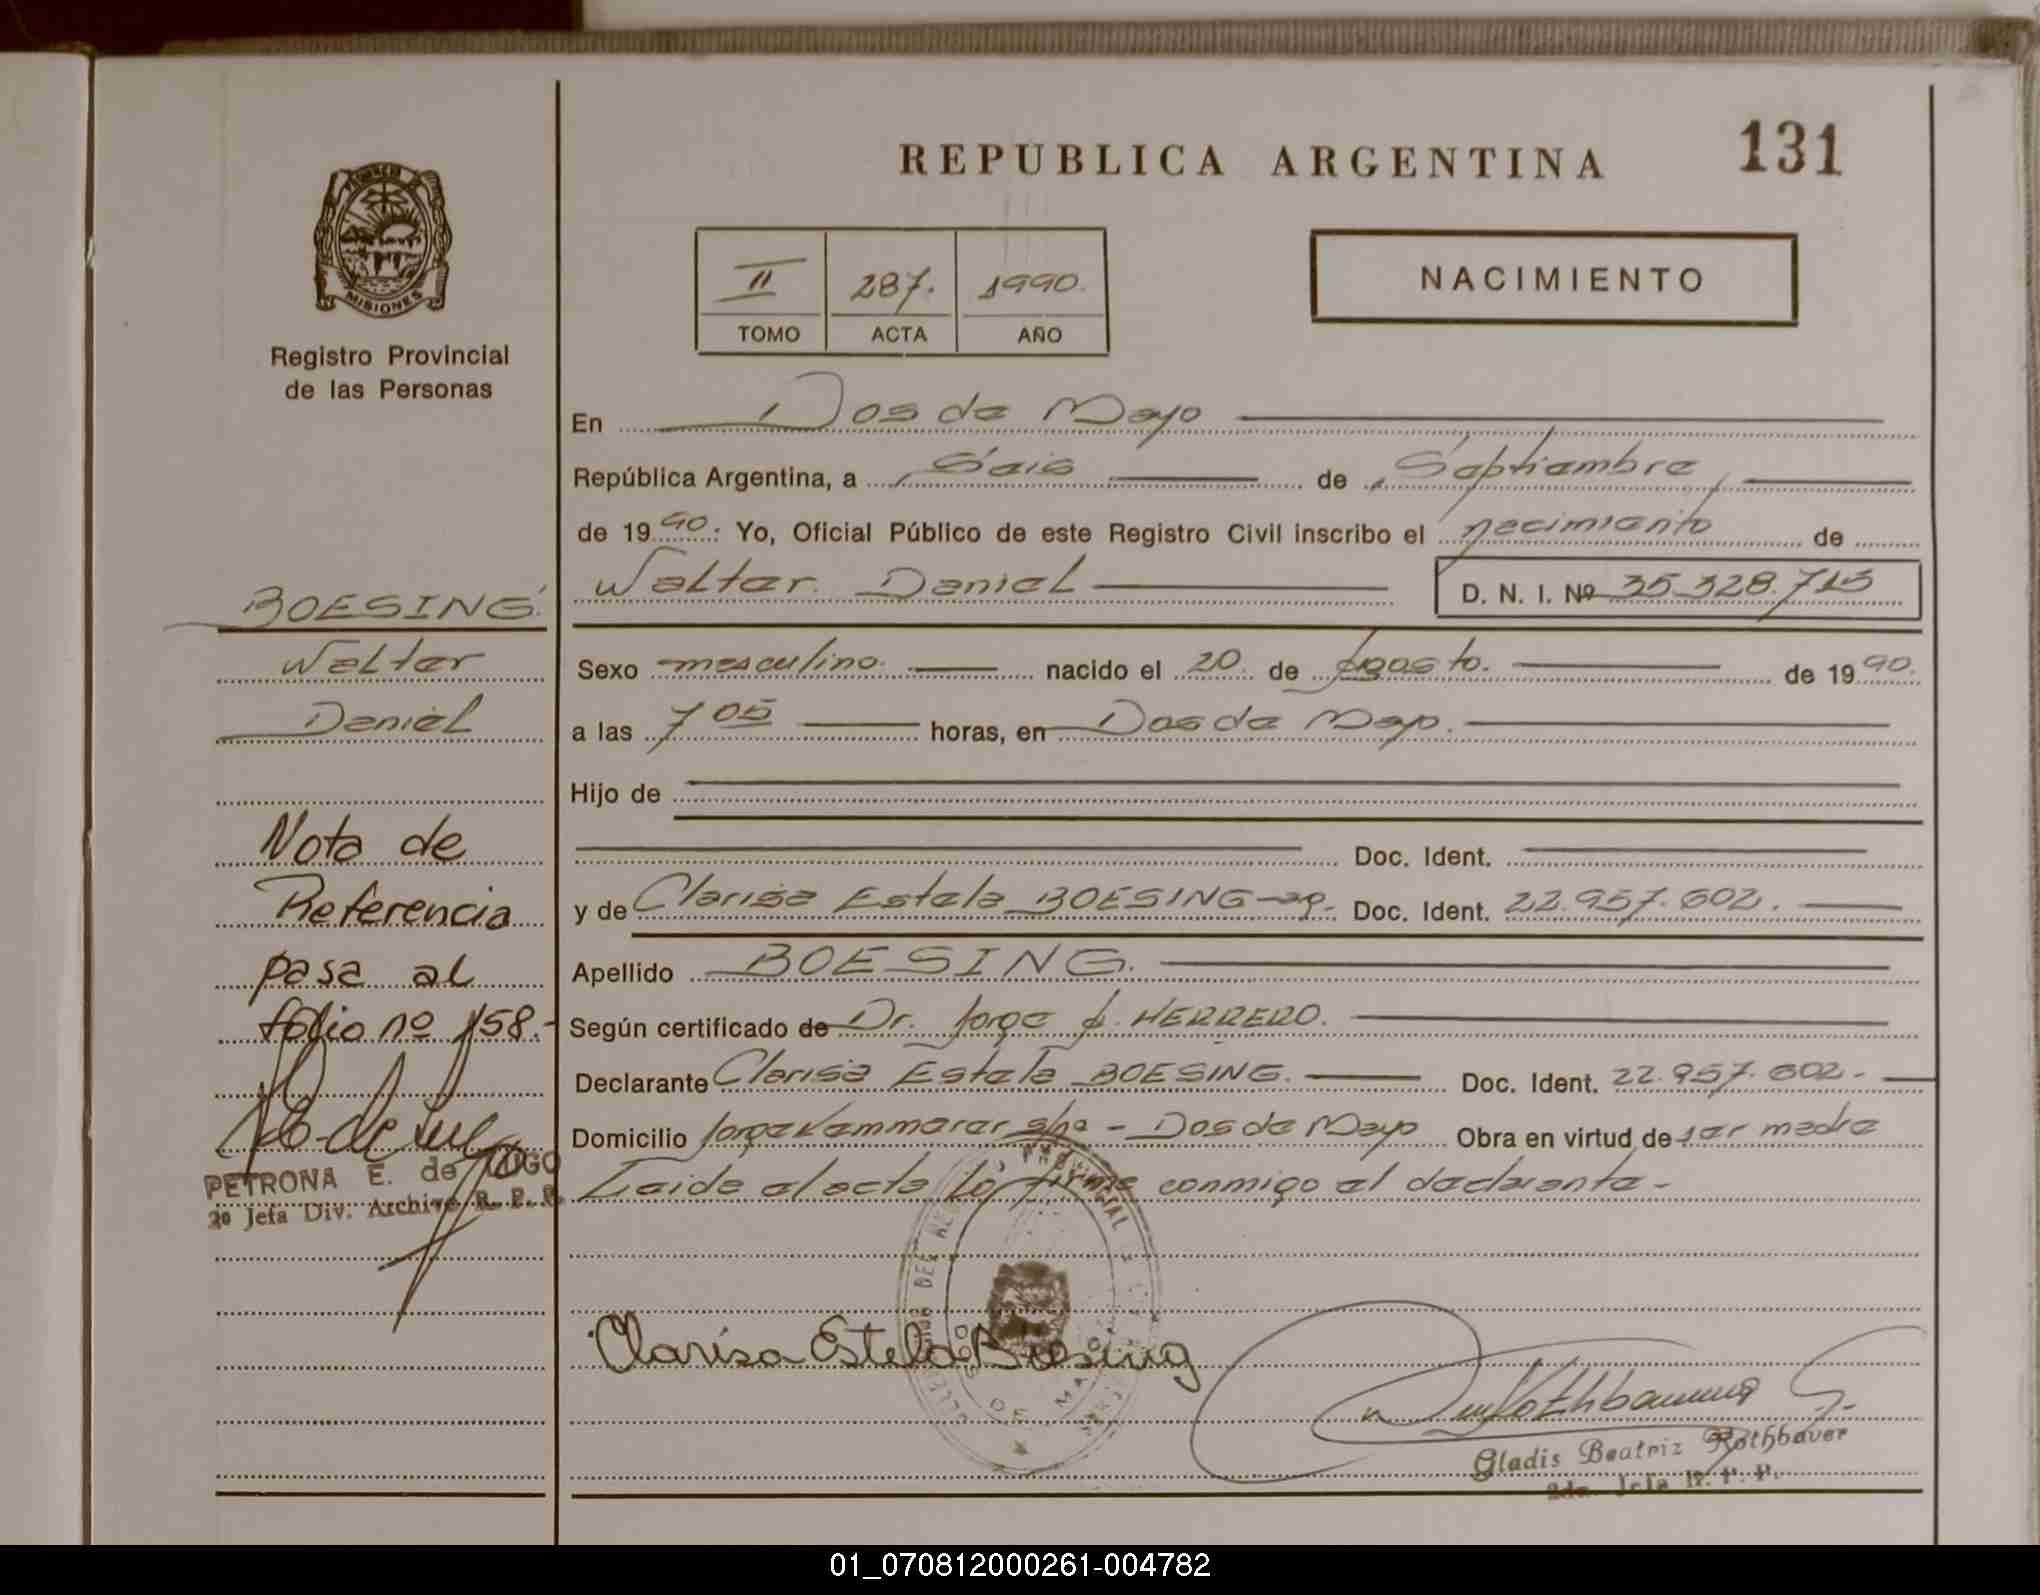 131
REPUBLICA ARGENTINA
PROVINCIA DE
MISIONES
Registro Provincial
de las Personas
II 287. 1990.
TOMO ACTA AÑO
NACIMIENTO
En Dos de Mayo
República Argentina, a Seis de Septiembre,
de 1990: Yo, Oficial Público de este Registro Civil inscribo el nacimiento de
Walter Daniel D. N. I. Nº 35.328.713
Sexo masculino. nacido el 20. de Agosto. de 1990.
a las 7 05 horas, en Dos de Mayo.
Hijo de
Doc. Ident.
y de Clarisa Estela BOESING Doc. Ident. 22.957.602.
Apellido BOESING.
Según certificado de Dr. Jorge A. HERRERO.
Declarante Clarisa Estela BOESING. Doc. Ident. 22.957.602.-
Domicilio Jorge Kammerer s/nº - Dos de Mayo Obra en virtud de ser madre
Leida el acta la firma conmigo el declarante-
BOESING.
Walter
Daniel
Nota de
Referencia
pasa al
folio nº 158.-
PETRONA E. de LUGO
2º Jefa Div. Archivo R. P. P.
Clarisa Estela Boesing
DOS DE MAYO
Gladis Beatriz Rothbauer
2da. Jefa R. P. P.
01_070812000261-004782